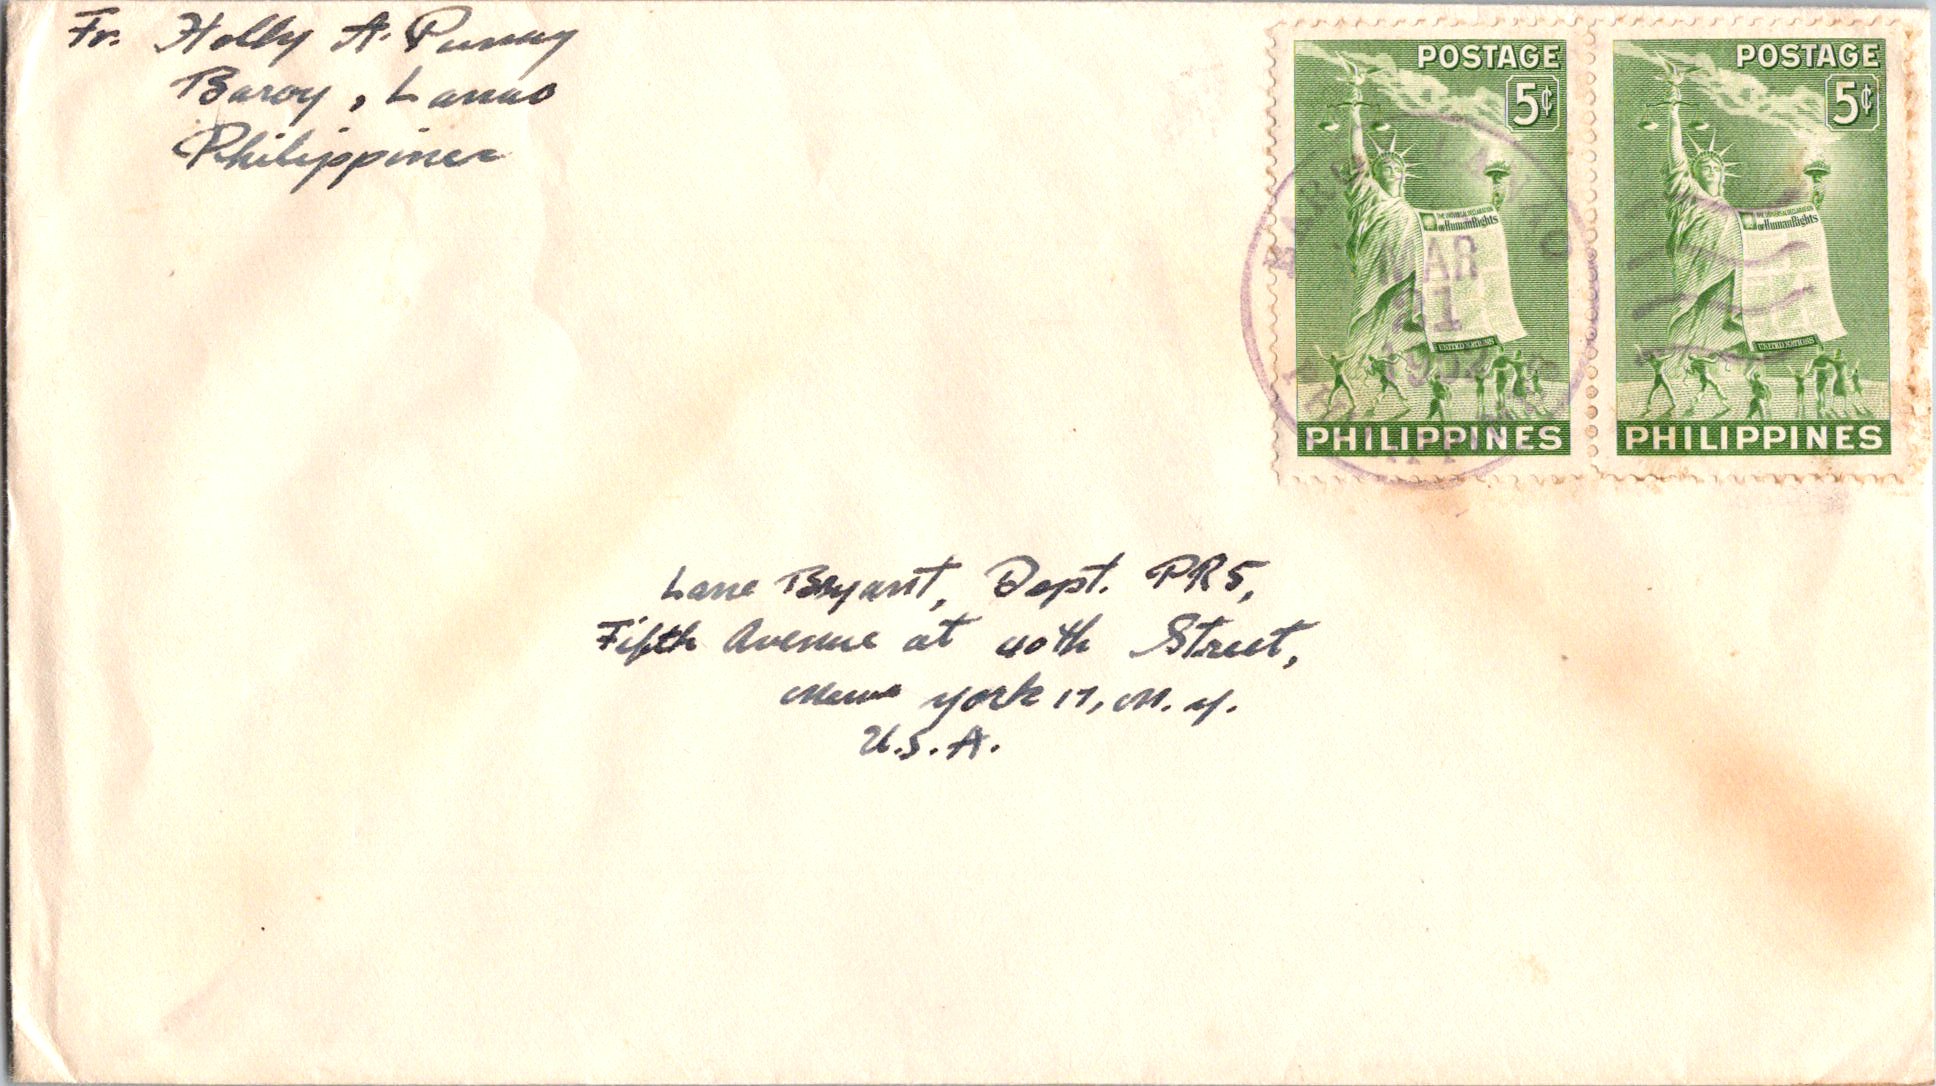 Fr. Holly A.
Baroy, Lanao
Philippines
POSTAGE
5¢
THE UNIVERSAL DECLARATION
OF Human Rights
UNITED NATIONS
PHILIPPINES
POSTAGE
5¢
THE UNIVERSAL DECLARATION
OF Human Rights
UNITED NATIONS
PHILIPPINES
MAR
21
Lane Bryant, Dept. PR5,
Fifth Avenue at 40th Street,
New York 17, N.Y.
U.S.A.